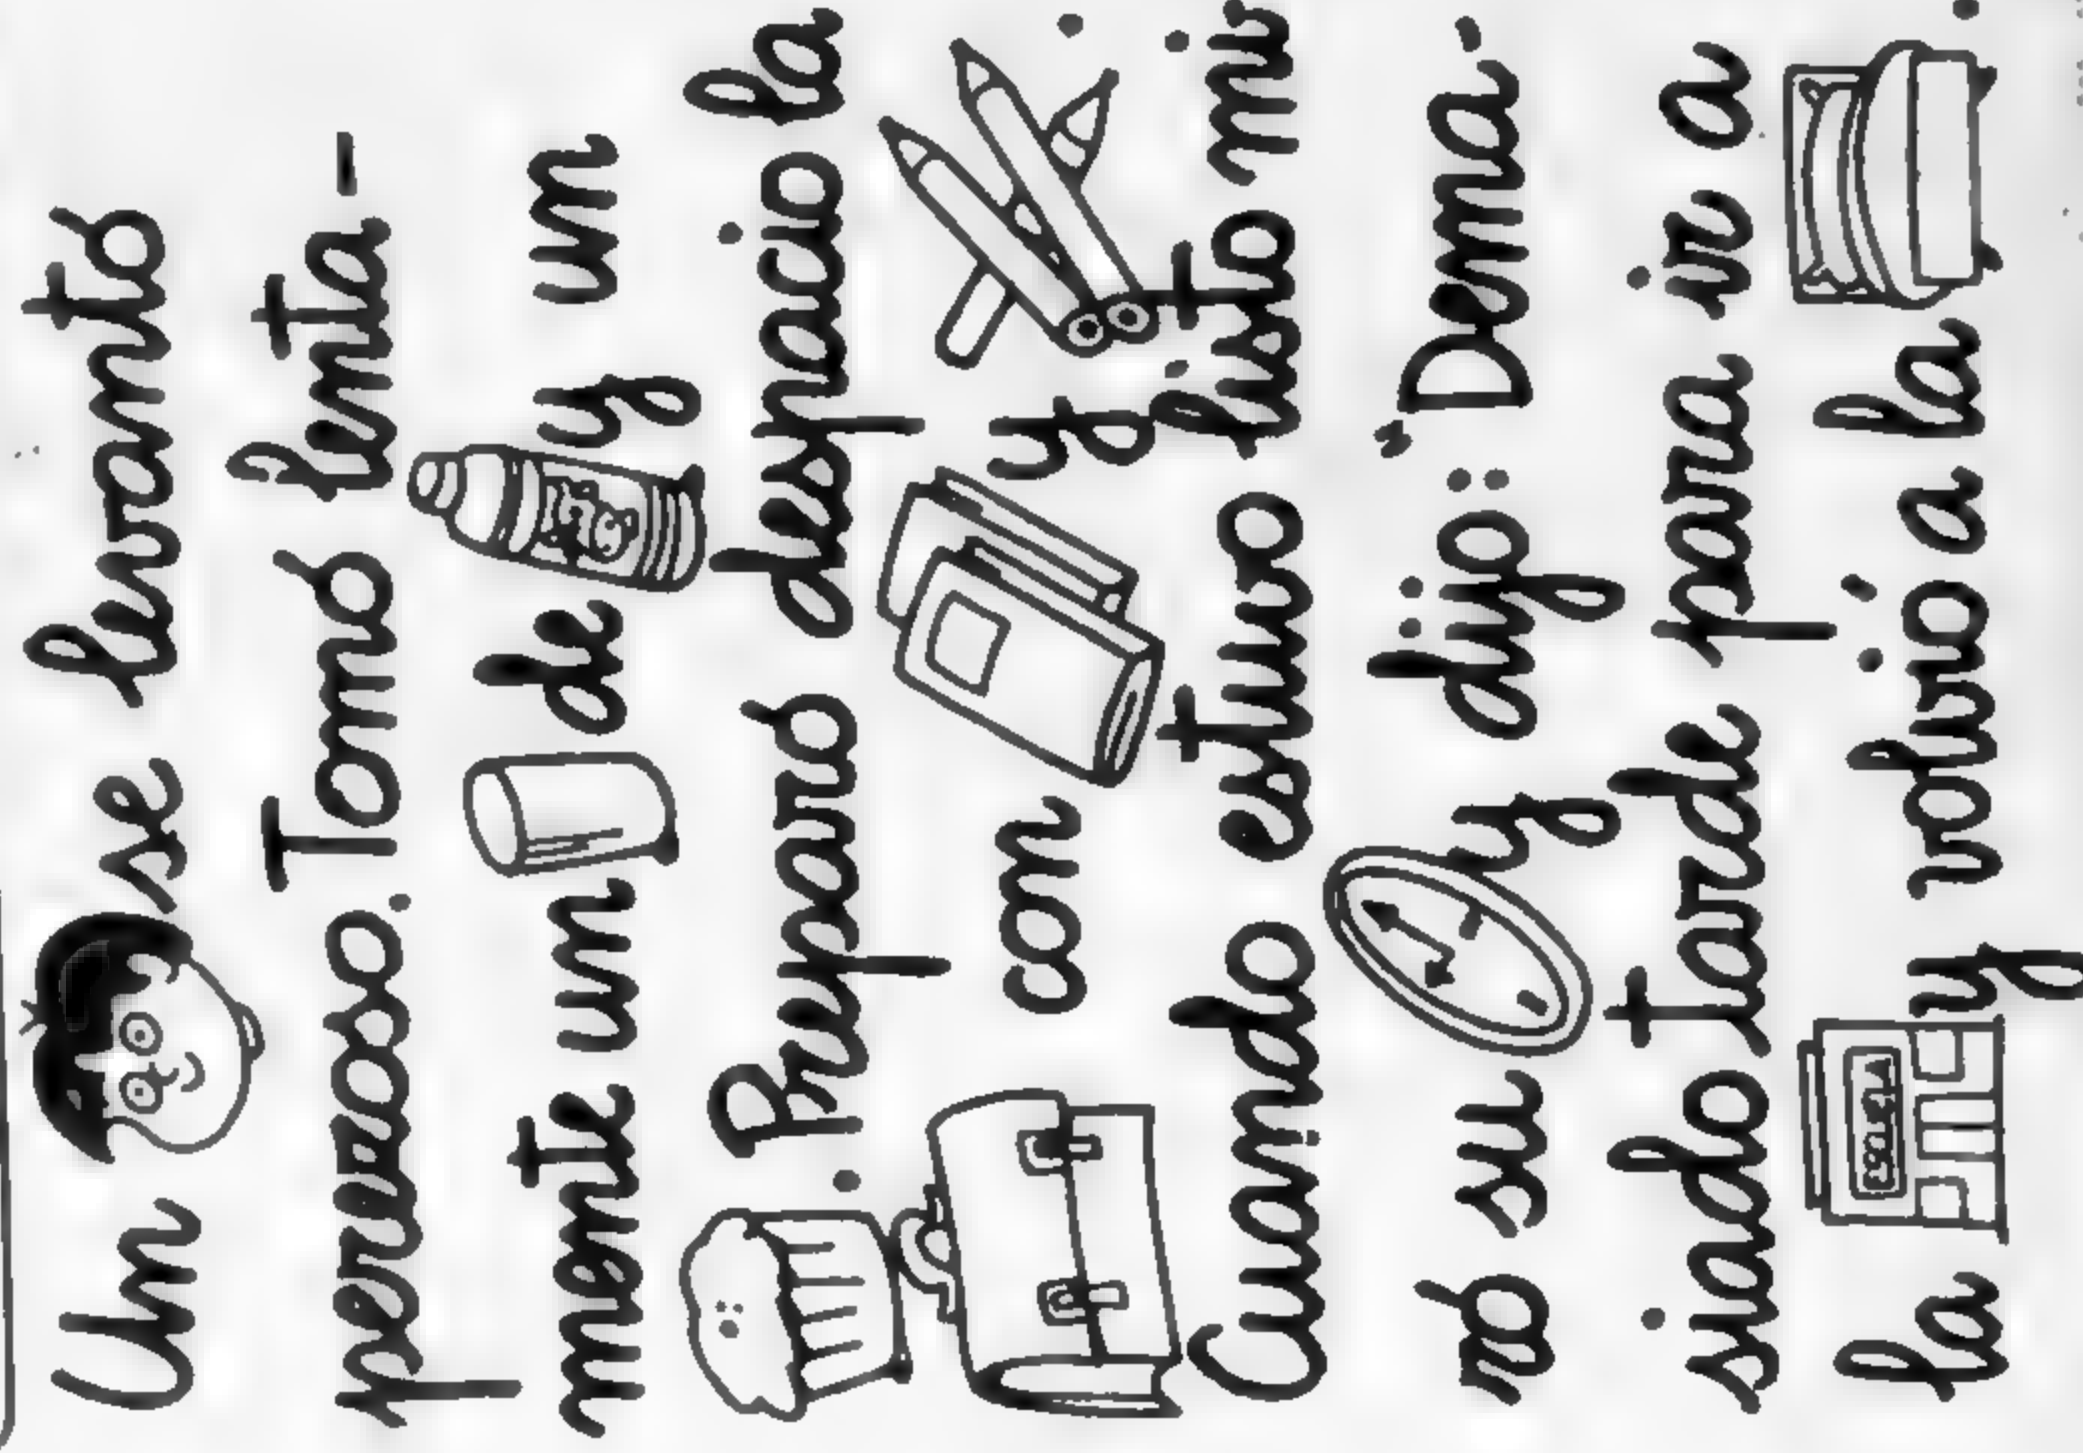 Un se levantó
perezoso. Tomó lenta-
mente un de y un
. Preparó despacio la
con y .
Cuando estuvo listo mi-
ró su y dijo: "Dema-
siado tarde para ir a
la ESCUELA y volvió a la .